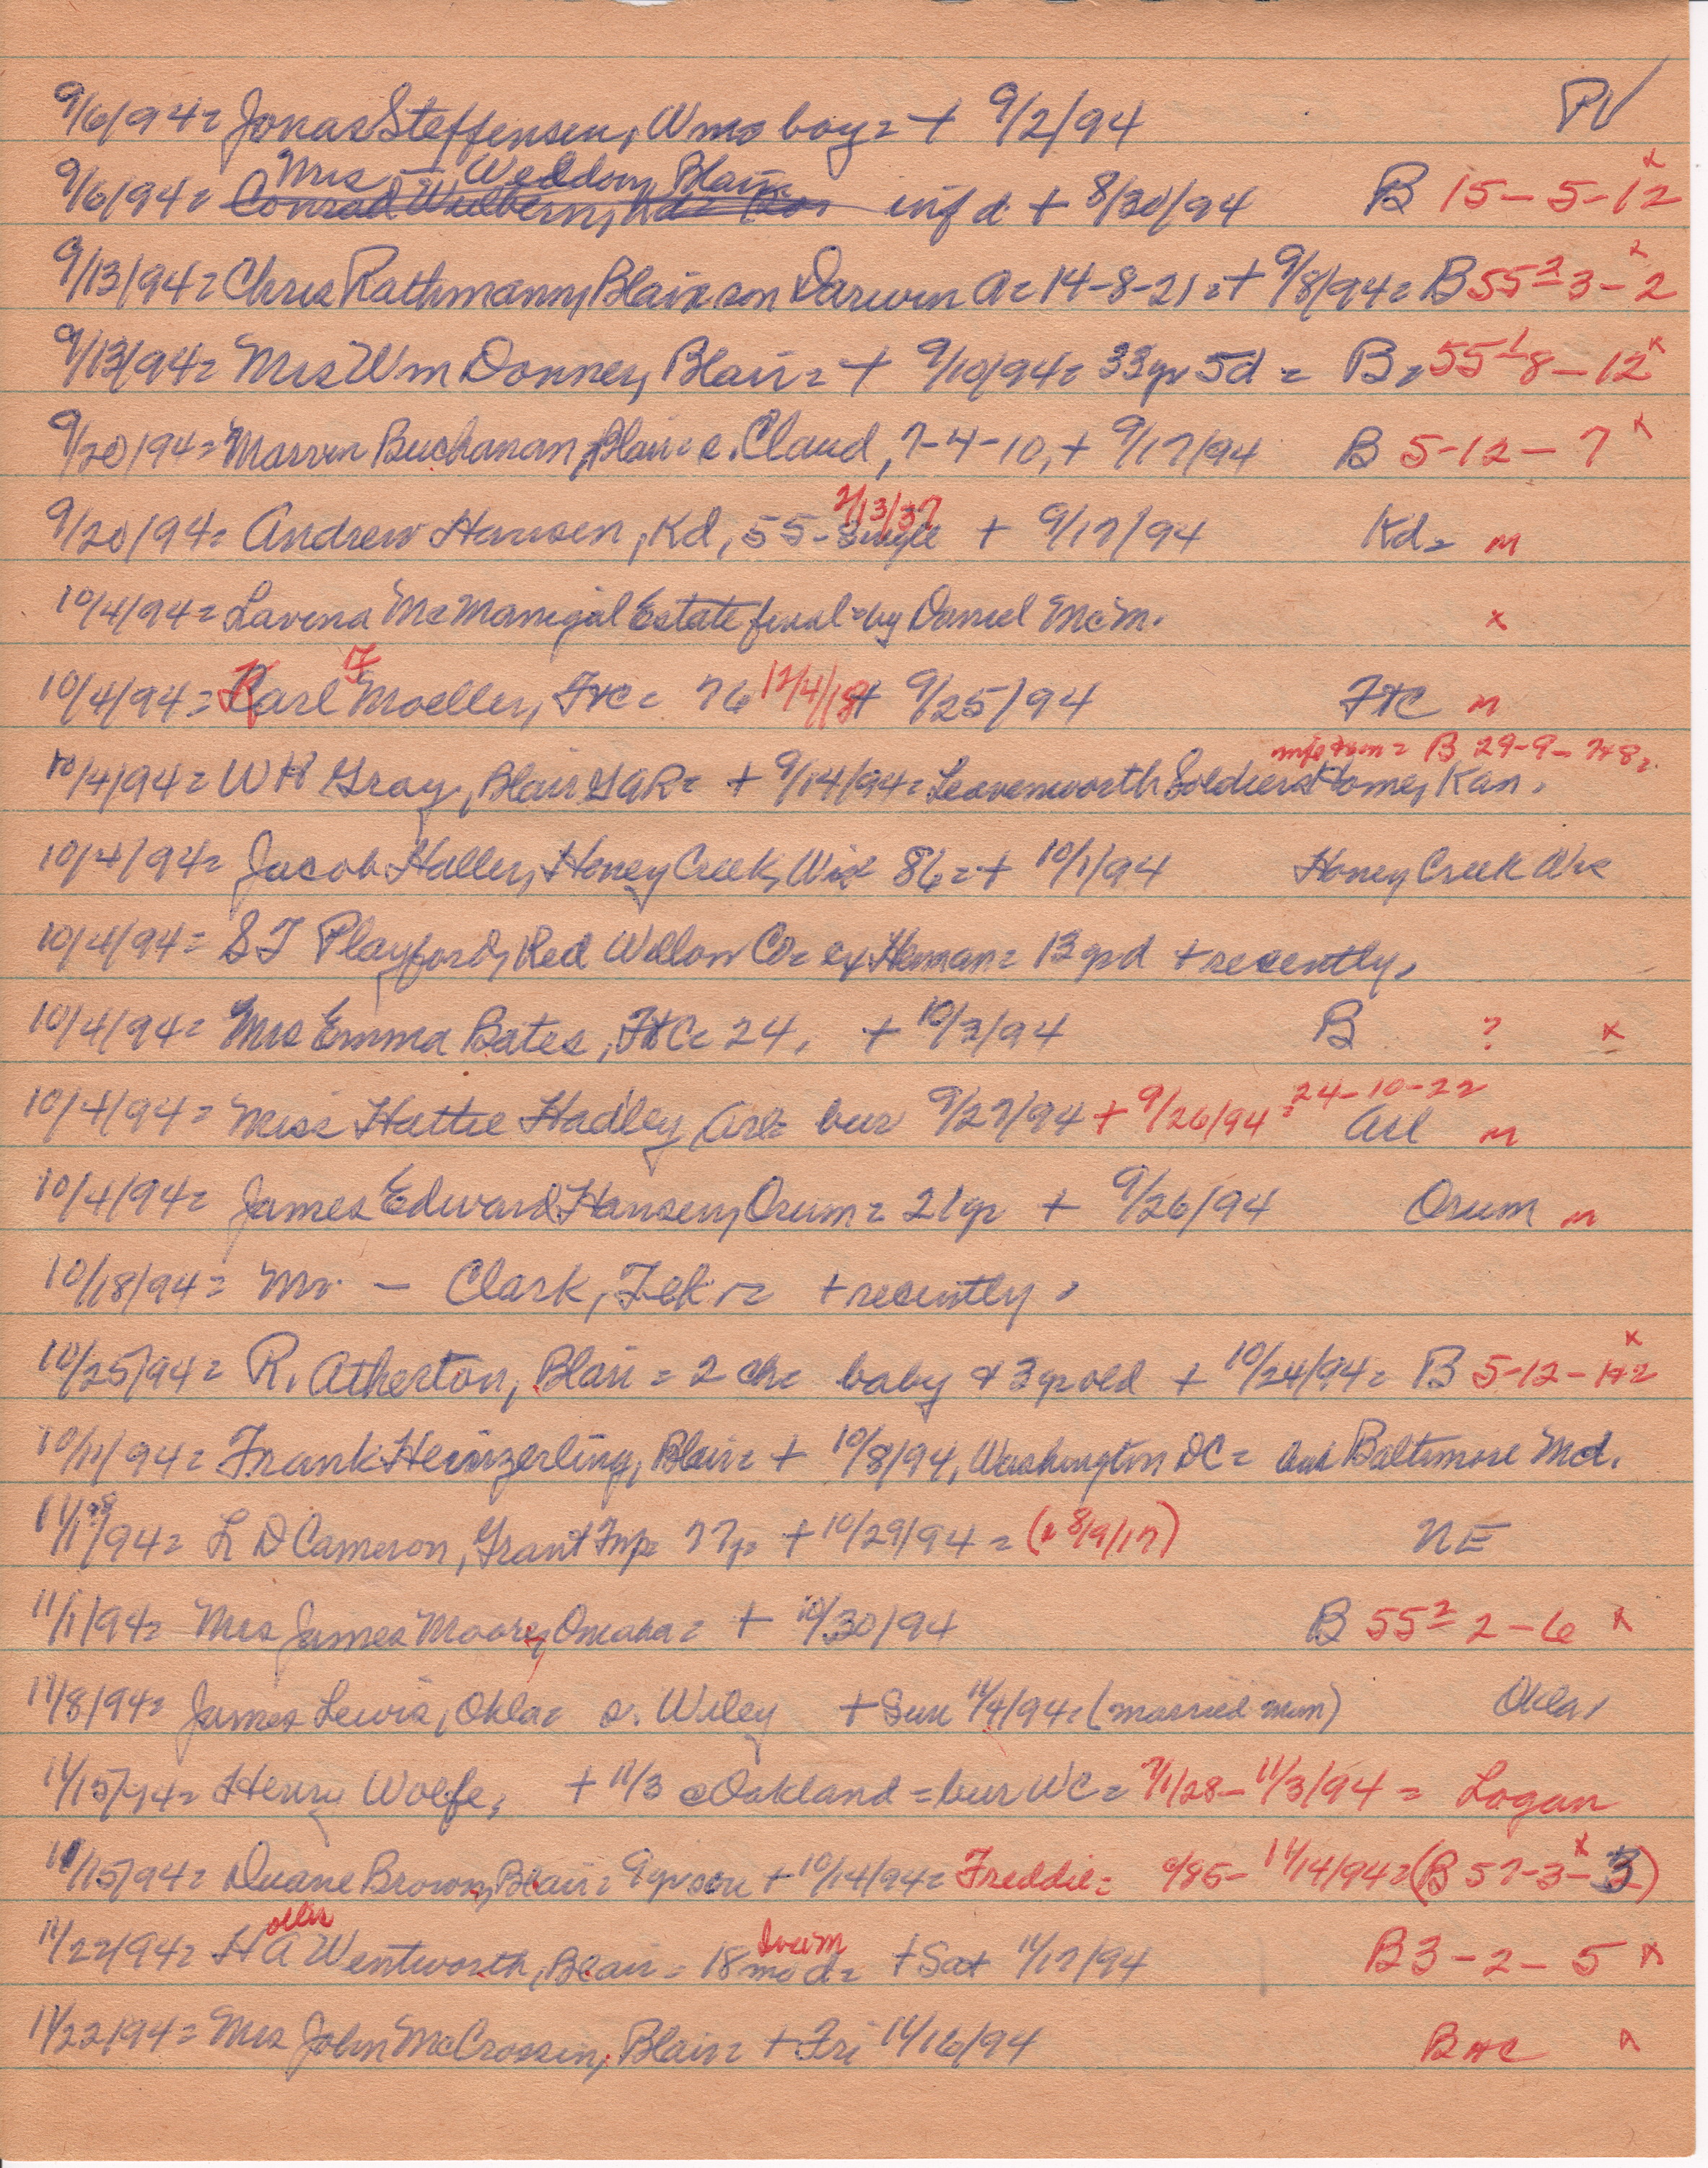 9/6/94= Jonas Steffensen, Wms boy= + 9/2/94 PV
Mrs — Weddon, Blair
9/6/94= Conrad inf d + 8/30/94 B 15-5-12 x
9/13/94= Chris Rathmann, Blair son Darwin a= 14-8-21= + 9/8/94= B 55²= 3-2 x
9/13/94= Mrs Wm Donney, Blair= + 9/10/94= 33yr 5d = B= 55¹= 8-12 x
9/20/94= Marvin Buchanan, Blair= c. Claud, 7-4-10, + 9/17/94 B 5-12-7 x
2/13/37
9/20/94= Andrew Hansen, Kd, 55- Single + 9/17/94 Kd= m
10/4/94= Lavina McManigal Estate final= by Daniel McM. x
10/4/94= Karl F Moeller, FtC= 76 12/4/18 + 9/25/94 FtC m
B 29-9-7+8=
10/4/94= WH Gray, Blair GAR= + 9/14/94= Leavenworth Soldiers Home, Kan.
10/4/94= Jacob Haller, Honey Creek, Wis 86= + 10/1/94 Honey Creek Wis
10/4/94= ST Playford, Red Willow Co= ex Herman= 13 grd + recently,
10/4/94= Mrs Emma Bates, FtC= 24, + 10/3/94 B ? x
10/4/94= Miss Hattie Hadley, Arl= bur 9/27/94 + 9/26/94 = 24-10-22 Arl m
10/4/94= James Edward Hansen, Orum= 21yr + 9/26/94 Orum m
10/18/94= Mr. — Clark, Tek.= + recently,
10/25/94= R. Atherton, Blair= 2 ch= baby & 3yr old + 10/24/94= B 5-12-1+2 x
10/11/94= Frank Heinzerling, Blair= + 10/8/94, Washington DC= bur Baltimore Md.
94= L D Cameron, Grant Twp= 77yr + 10/29/94= (* 8/9/17) NE
11/1/94= Mrs James Moore, Omaha= + 10/30/94 B 55²= 2-6 x
11/8/94= James Lewis, Okla= s. Wiley + Sun 11/4/94= (married man) Okla,
11/15/94= Henry Wolfe, + 11/3 Oakland= bur WC= 7/1/28- 11/3/94= Logan
11/15/94= Duane Brown, Blair= 9yr son + 10/14/94= Freddie= 9/85- 11/14/94= (B 57-3-3) x
11/22/94= H A Wentworth, Blair= 18 mo d= + Sat 11/17/94 B 3-2-5 x
11/22/94= Mrs John McCrossin, Blair= + Fri 11/16/94 B x